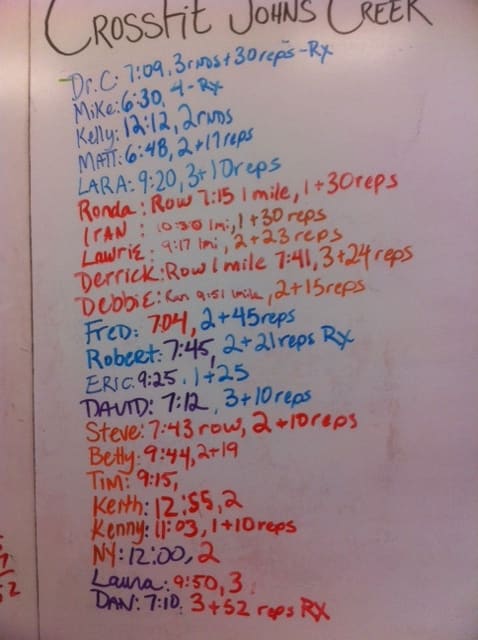 CROSSFIT JOHNS CREEK
Dr. C: 7:09, 3 RNDS + 30 reps - Rx
MIKE: 6:30, 4 - Rx
Kelly: 12:12, 2 RNDS
MATT: 6:48, 2 + 17 reps
LARA: 9:20, 3 + 10 reps
Ronda: Row 7:15 1 mile, 1 + 30 reps
IRAN: 10:30 1mi, 1 + 30 reps
Lawrie: 9:17 1mi, 2 + 23 reps
Derrick: Row 1 mile 7:41, 3 + 24 reps
Debbie: Ran 9:51 1mile, 2 + 15 reps
FRED: 7:04, 2 + 45 reps
Robert: 7:45, 2 + 21 reps Rx
ERIC: 9:25, 1 + 25
DAVID: 7:12, 3 + 10 reps
Steve: 7:43 row, 2 + 10 reps
Betty: 9:44, 2 + 19
TIM: 9:15,
Keith: 12:55, 2
Kenny: 11:03, 1 + 10 reps
NY: 12:00, 2
Laura: 9:50, 3
DAN: 7:10, 3 + 52 reps RX